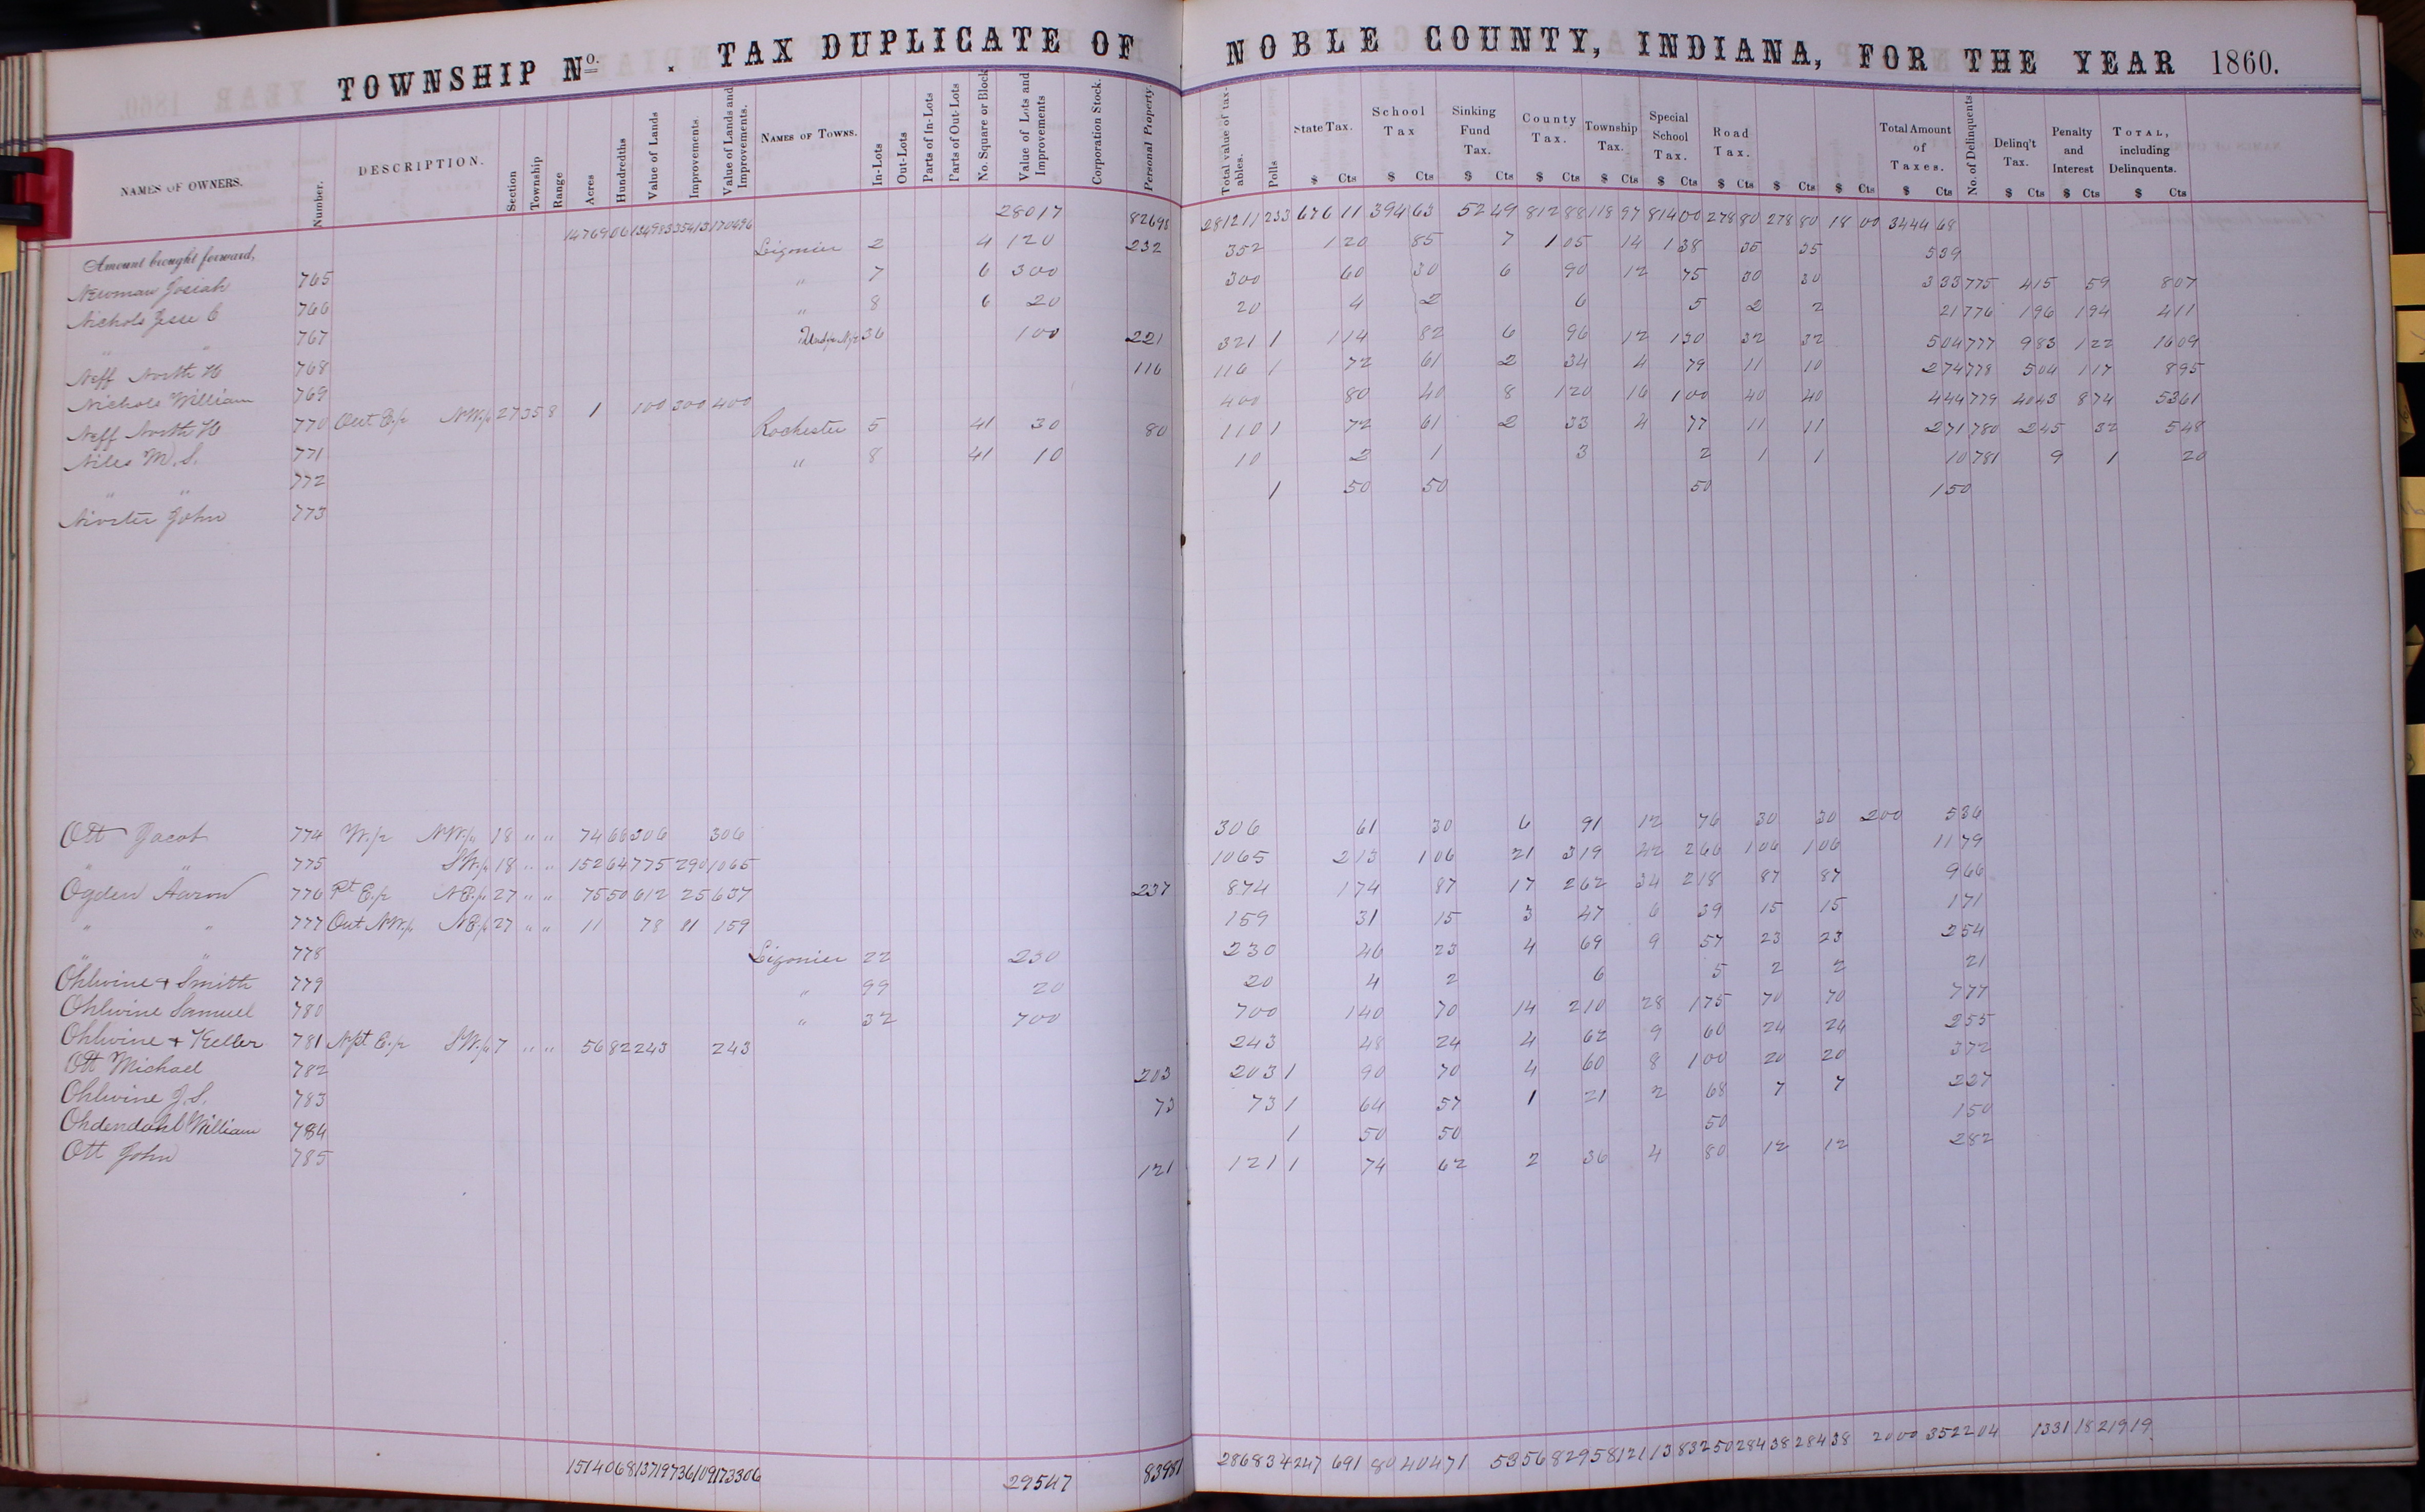 TOWNSHIP No. . TAX DUPLICATE OF NOBLE COUNTY, INDIANA, FOR THE YEAR 1860.
NAMES OF OWNERS. Number. DESCRIPTION. Section Township Range Acres Hundredths Value of Lands Improvements. Value of Lands and Improvements. NAMES OF TOWNS. In-Lots Out-Lots Parts of In-Lots Parts of Out-Lots No. Square or Block Value of Lots and Improvements Corporation Stock. Personal Property. Total value of taxables. Polls State Tax. School Tax Sinking Fund Tax. County Tax. Township Tax. Special School Tax. Road Tax. Total Amount of Taxes. No. of Delinquents. Delinq't Tax. Penalty and Interest TOTAL, including Delinquents.
$ Cts $ Cts $ Cts $ Cts $ Cts $ Cts $ Cts $ Cts $ Cts $ Cts $ Cts $ Cts $ Cts
Amount brought forward, 28017 82698 281211 233 676 11 394 63 52 49 812 88 118 97 814 00 278 80 278 80 18 00 3444 68
Newman Josiah 765 Ligonier 2 4 120 232 352 1 20 85 7 1 05 14 1 38 35 35 5 39
Nichols Jesse C 766 " 7 6 300 300 60 30 6 90 12 75 30 30 3 33 775 4 15 59 8 07
" " 767 " 8 6 20 20 4 2 6 5 2 2 21 776 1 96 1 94 4 11
Neff North H 768 36 100 221 321 1 1 14 82 6 96 12 1 30 32 32 5 04 777 9 83 1 22 16 09
Nichols William 769 116 116 1 72 61 2 34 4 79 11 10 2 74 778 5 04 1 17 8 95
Neff North H 770 Out E.p N.W.p 27 35 8 1 100 300 400 400 80 40 8 1 20 16 1 00 40 40 4 44 779 40 43 8 74 53 61
Niles M. S. 771 Rochester 5 41 30 80 110 1 72 61 2 33 4 77 11 11 2 71 780 2 45 32 5 48
" " 772 " 8 41 10 10 2 1 3 2 1 1 10 781 9 1 20
John 773 1 50 50 50 1 50
Ott Jacob 774 W.p N.W.p 18 " " 74 68 306 306 306 61 30 6 91 12 76 30 30 2 00 5 36
" " 775 S.W.p 18 " " 152 64 775 290 1065 1065 2 13 1 06 21 3 19 42 2 66 1 06 1 06 11 79
Ogden Aaron 776 Pt E.p N.E.p 27 " " 75 50 612 25 637 237 874 1 74 87 17 2 62 34 2 18 87 87 9 66
" " 777 Out N.W.p N.E.p 27 " " 11 78 81 159 159 31 15 3 47 6 39 15 15 1 71
" " 778 Ligonier 22 230 230 46 23 4 69 9 57 23 23 2 54
Ohlwine & Smith 779 " 99 20 20 4 2 6 5 2 2 21
Ohlwine Samuel 780 " 32 700 700 1 40 70 14 2 10 28 1 75 70 70 7 77
Ohlwine & Keller 781 N.pt E.p S.W.p 7 " " 56 82 243 243 243 48 24 4 62 9 60 24 24 2 55
Ott Michael 782 203 203 1 90 70 4 60 8 1 00 20 20 3 72
Ohlwine J. S. 783 73 73 1 64 57 1 21 2 68 7 7 2 27
Ohdendahl William 784 1 50 50 50 1 50
Ott John 785 121 121 1 74 62 2 36 4 80 12 12 2 82
29547 83981 286834 247 691 80 404 71 53 56 829 58 121 13 832 50 284 38 284 38 20 00 3522 04